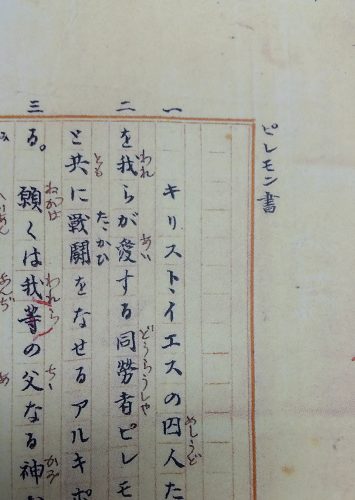 ピレモン書
一 キリスト・イエスの囚人た
二 を我らが愛する同勞者ピレモ
と共に戦闘をなせるアルキポ
三 る。願くは我等の父なる神
めしうど
われ あい どうらうしや
とも たたかひ
ねがは われら ちち かみ